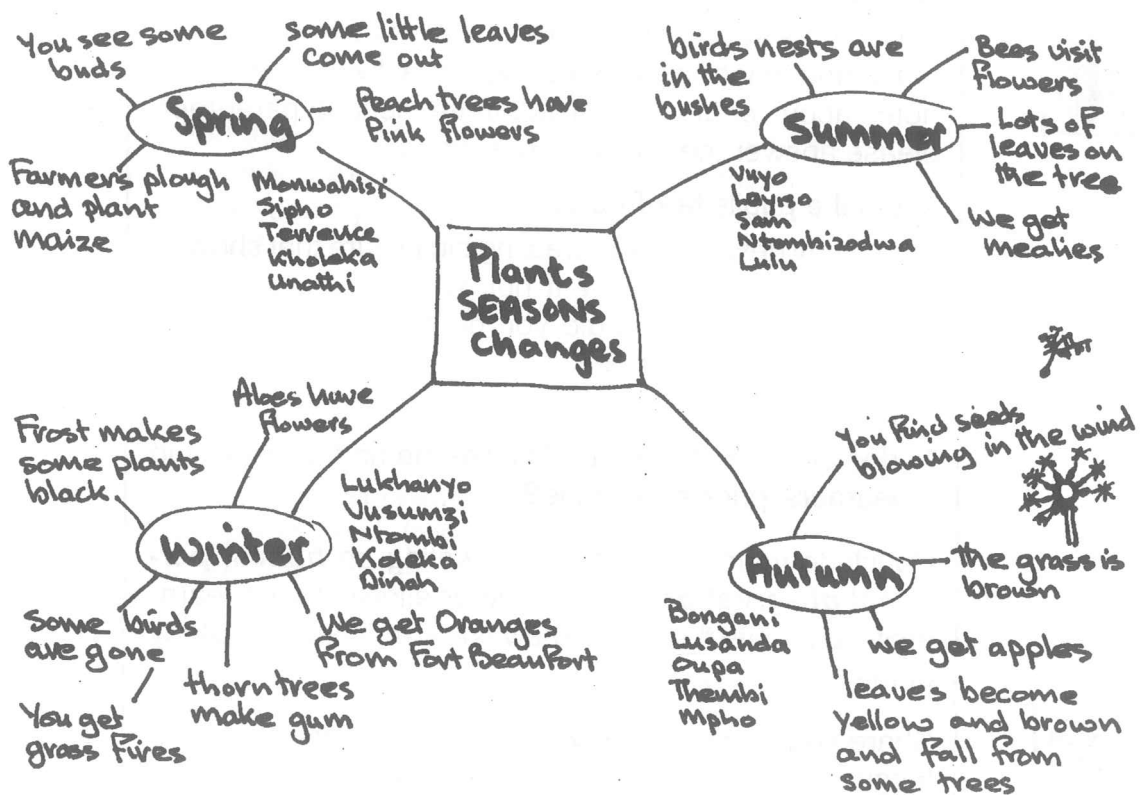 Plants
SEASONS
Changes
Spring
You see some
buds
some little leaves
come out
Peach trees have
Pink flowers
Farmers plough
and plant
maize
Monwabisi
Sipho
Terrence
Kholeka
Unathi
Summer
birds nests are
in the
bushes
Bees visit
flowers
Lots of
leaves on
the tree
we get
mealies
Vuyo
Layiso
Sam
Ntombizodwa
Lulu
Winter
Frost makes
some plants
black
Aloes have
flowers
Lukhanyo
Vusumzi
Ntombi
Koleka
Dinah
Some birds
are gone
You get
grass fires
thorn trees
make gum
We get Oranges
From Fort Beaufort
Autumn
You find seeds
blowing in the wind
the grass is
brown
we get apples
leaves become
yellow and brown
and fall from
some trees
Bongani
Lusanda
Oupa
Thembi
Mpho